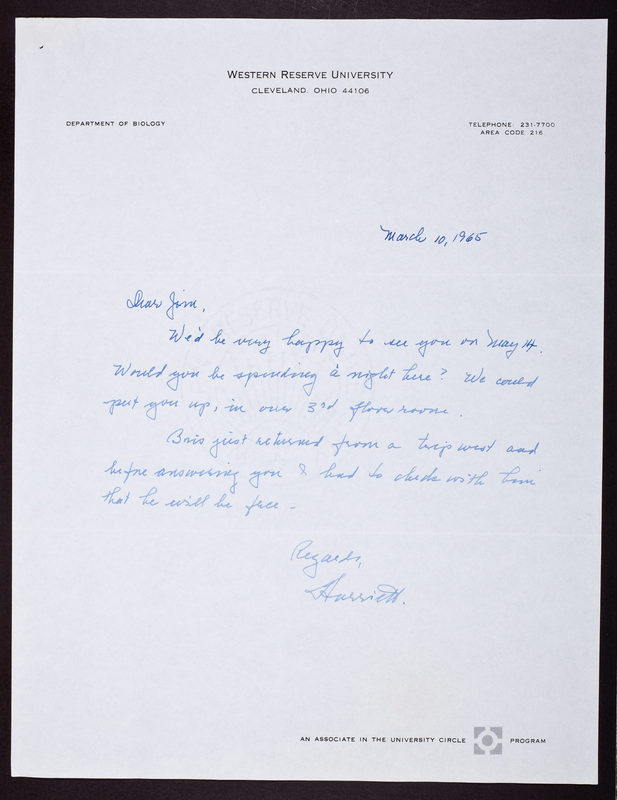 WESTERN RESERVE UNIVERSITY
CLEVELAND, OHIO 44106
DEPARTMENT OF BIOLOGY
TELEPHONE: 231-7700
AREA CODE 216
March 10, 1965
Dear Jim,
We'd be very happy to see you on May 14.
Would you be spending a night here? We could
put you up, in our 3rd floor room.
Bris just returned from a trip west and
before answering you I had to check with him
that he will be free -
Regards,
Harriett.
AN ASSOCIATE IN THE UNIVERSITY CIRCLE PROGRAM